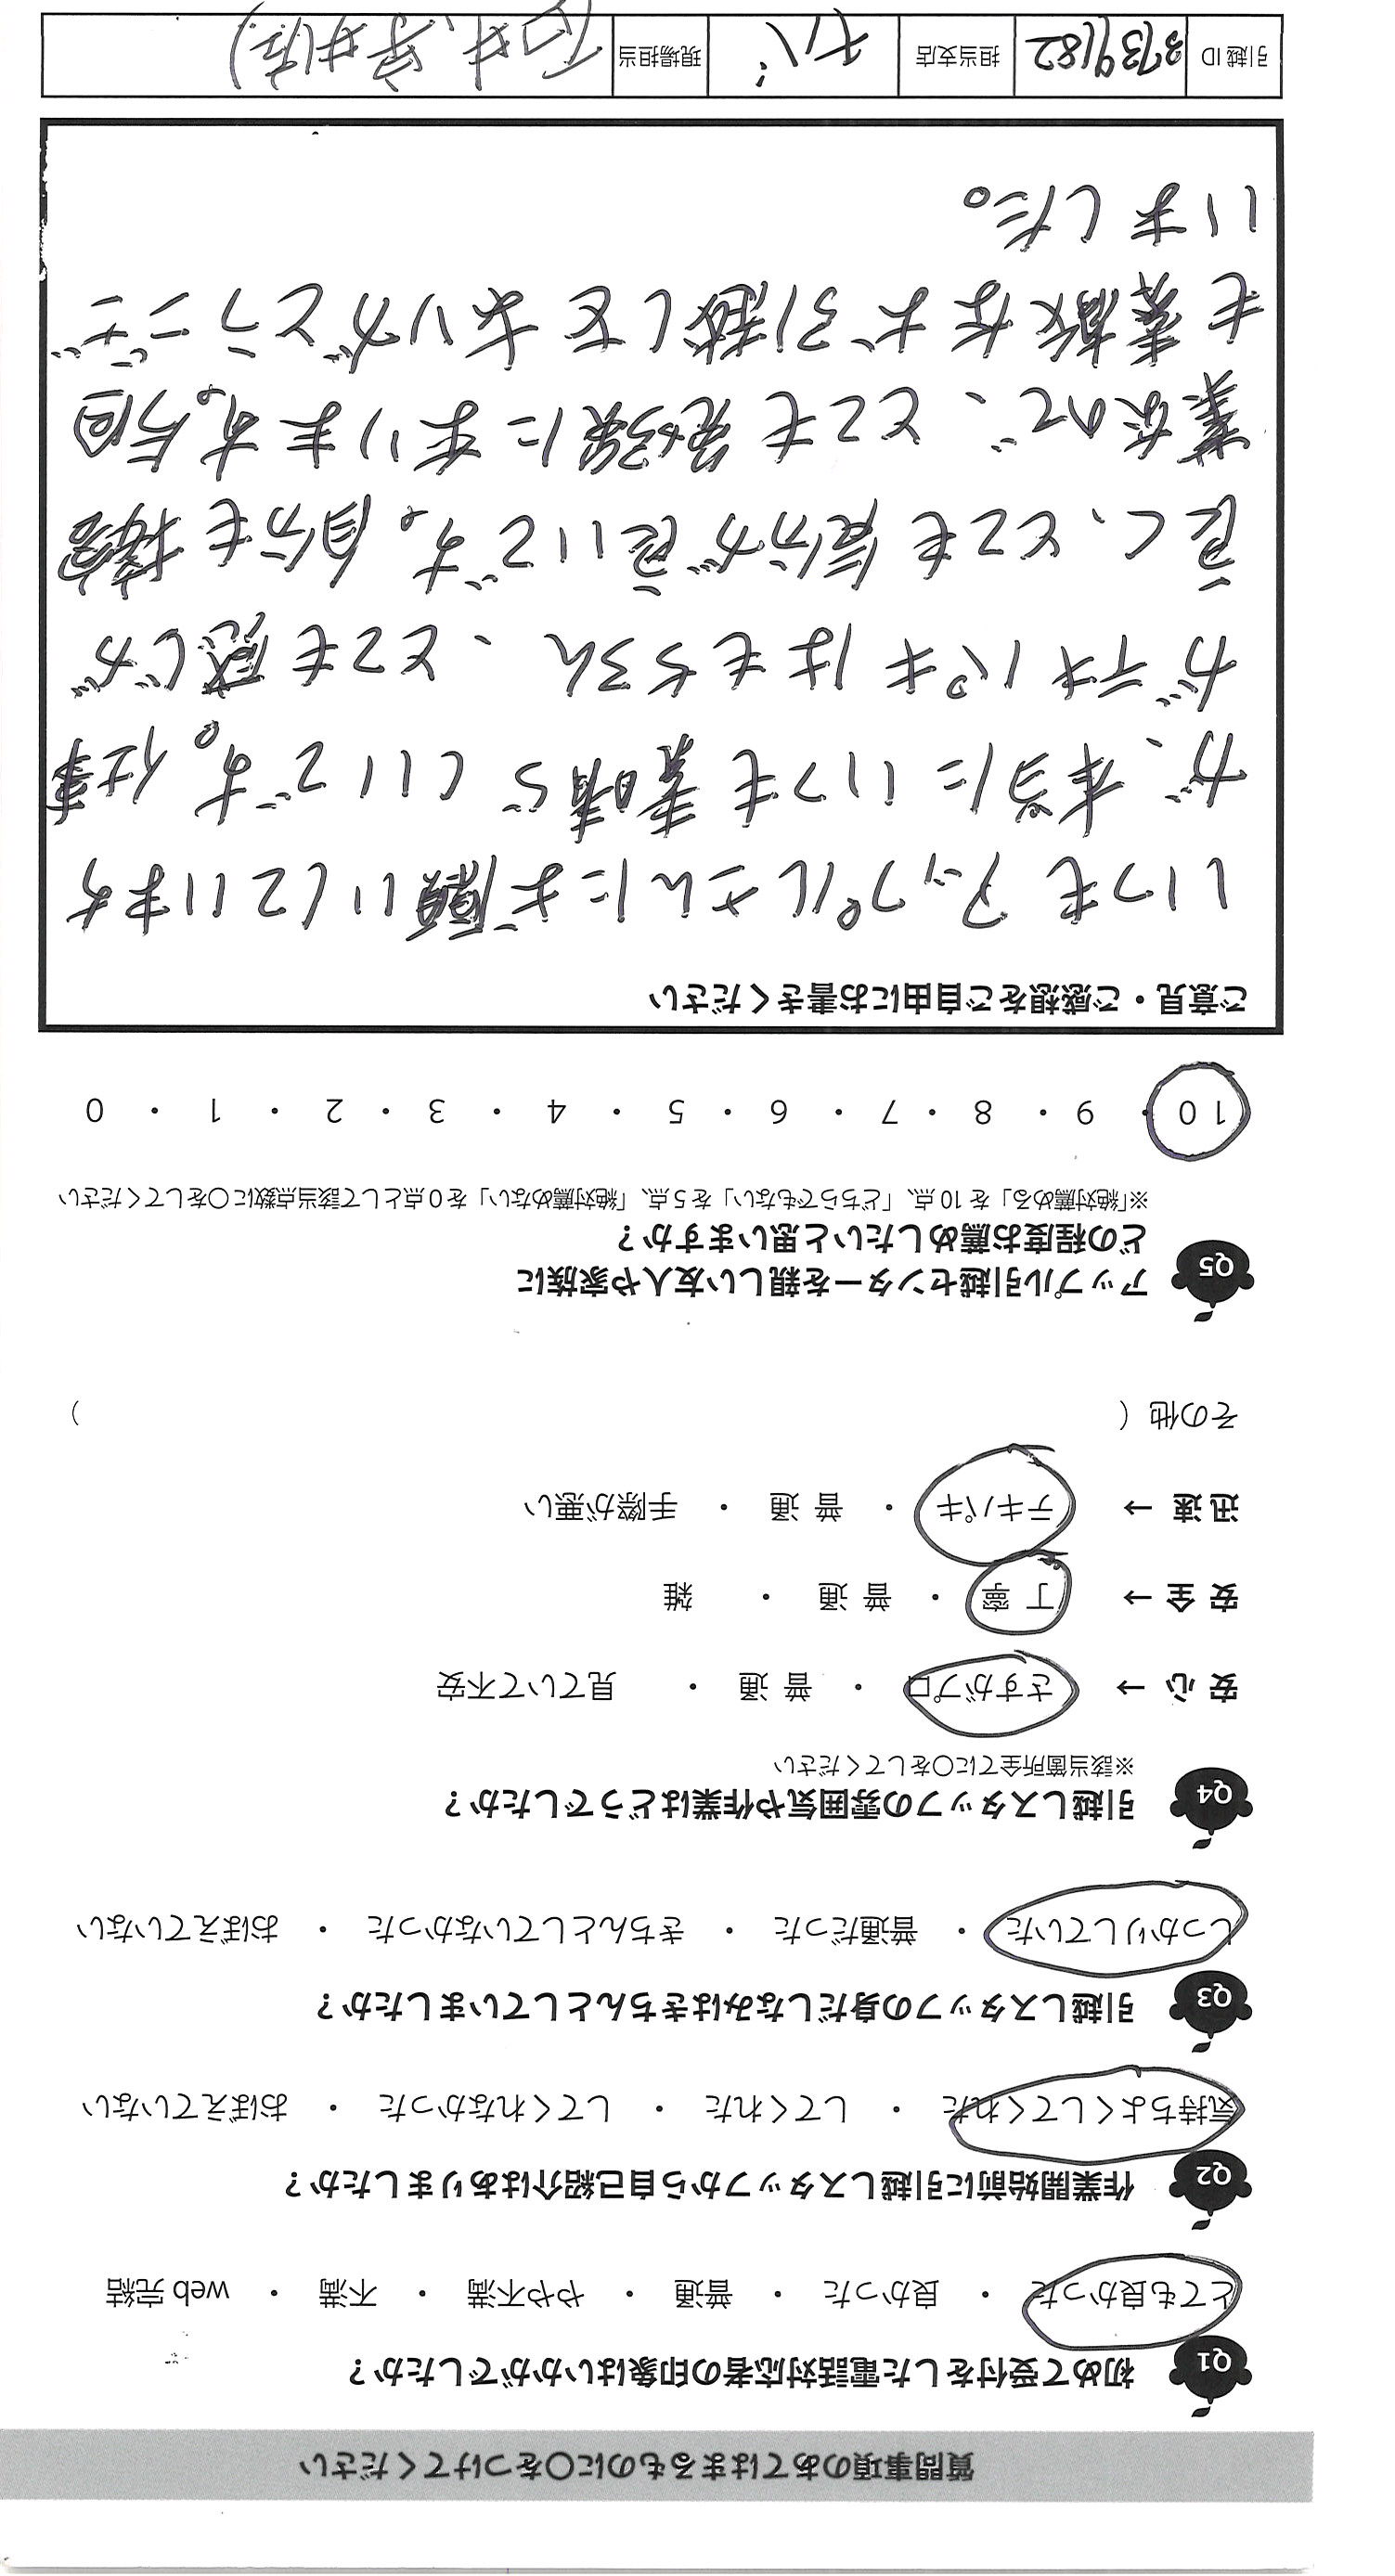 質問事項のあてはまるものに〇をつけてください
Q1 初めて受付をした電話対応者の印象はいかがでしたか?
とても良かった ・ 良かった ・ 普通 ・ やや不満 ・ 不満 ・ web 完結
Q2 作業開始前に引越しスタッフから自己紹介はありましたか?
気持ちよくしてくれた ・ してくれた ・ してくれなかった ・ おぼえていない
Q3 引越しスタッフの身だしなみはきちんとしていましたか?
しっかりしていた ・ 普通だった ・ きちんとしていなかった ・ おぼえていない
Q4 引越しスタッフの雰囲気や作業はどうでしたか?
※該当箇所全てに〇をしてください
安心 → さすがプロ ・ 普通 ・ 見ていて不安
安全 → 丁寧 ・ 普通 ・ 雑
迅速 → テキパキ ・ 普通 ・ 手際が悪い
その他 ( )
Q5 アップル引越センターを親しい友人や家族に
どの程度お薦めしたいと思いますか?
※「絶対薦める」を 10 点、「どちらでもない」を 5 点、「絶対薦めない」を 0 点として該当点数に〇をしてください
10 ・ 9 ・ 8 ・ 7 ・ 6 ・ 5 ・ 4 ・ 3 ・ 2 ・ 1 ・ 0
ご意見・ご感想をご自由にお書きください
いつもアップルさんにお願いしています
が、本当にいつも素晴らしいです。仕事
がテキパキはもちろん、とても感じが
良く、とても気分が良いです。自分も接客
業なので、とても勉強になります。今回
も素敵なお引越しをありがとうござ
いました。
引越 ID 3739182 担当支店 現場担当